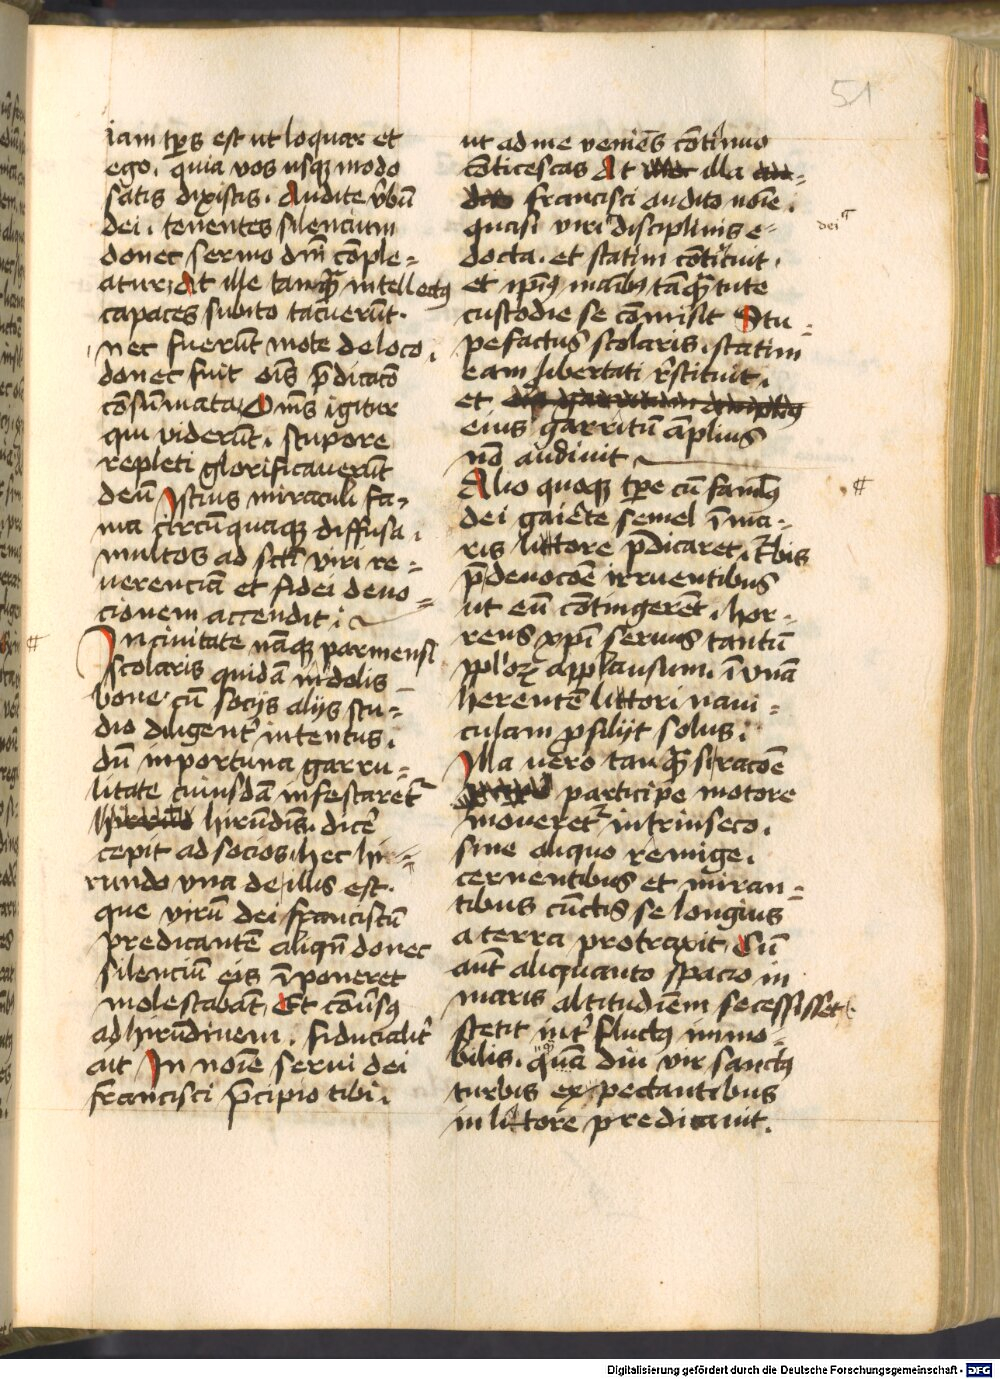 51
iam tp̄s est ut loquar et
ego. quia vos usqꝫ modo
satis dixistis. Audite v̄bū
dei. tenentes silencium
donec sermo dm̄ comple=
atur At ille tanqꝫ intellectus
capaces subito tacuerūt.
nec fuerūt mote de loco.
donec fuit oīs p̄dicacō
cōsūmata Om̄s igitur
qui viderūt. stupore
repleti glorificauerūt
deū Istius miraculi fa=
ma circūquaqꝫ diffusa.
multos ad sctī viri re=
uerenciā et fidei deuo=
cionem accendit.
In ciuitate nāqꝫ parmensi
scolaris quidā indolis
bone cū socijs alijs stu=
dio diligent̄ intentus.
dū importuna garru=
litate cuiusdā infestaret᷑
hirūdinis. dice᷑
cepit ad socios. hec hir=
rundo vna de illis est.
que virū dei franciscū
predicantē aliqn̄ donec
silenciū eis īponeret
molestabāt. Et cōūsꝰ
ad hirūdinem. fiducialit᷑
ait In noīe serui dei
francisci p̄cipio tibi.
ut ad me veniēs cōtinuo
cōticescas At illa
francisci audito noīe.
quasi viri disciplinis e=
docta. et statim cōticuit.
et ip̄iꝰ māibꝰ tāqꝫ tute
custodie se cōmisit Stu=
pefactus scolaris. statim
eam libertati r̄stituit.
et
eius garritū āplius
nō audiuit
Alio quoqꝫ tp̄e cū famlꝰ
dei gaiēte semel ī ma=
ris littore p̄dicaret. t᷑bis
p̄ deuocōe irruentibus
ut eū cōtingerēt. hor=
rens xp̄i seruus tantū
pplōꝝ applausum. ī vnā
herentē littori naui=
culam psilijt solus.
Illa vero tanqꝫ si racōe
participe motore
moueret᷑ intrinseco.
sine aliquo remige.
cernentibus et miran=
tibus cūctis se longius
a terra protraxit Cū
aūt aliquanto spacio in
maris altitudinem secessisset
stetit int᷑ fluctꝰ immo=
bilis. quādiu vir sanctꝰ
turbis expectantibus
in littore predicauit.
dei
Digitalisierung gefördert durch die Deutsche Forschungsgemeinschaft - DFG